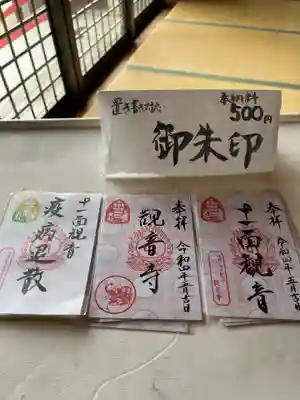 置き書き対応
奉納料
500円
御朱印
十一面観音
疫病退散
奉拝
観音寺
令和四年五月吉日
奉拝
十一面観音
令和四年五月吉日